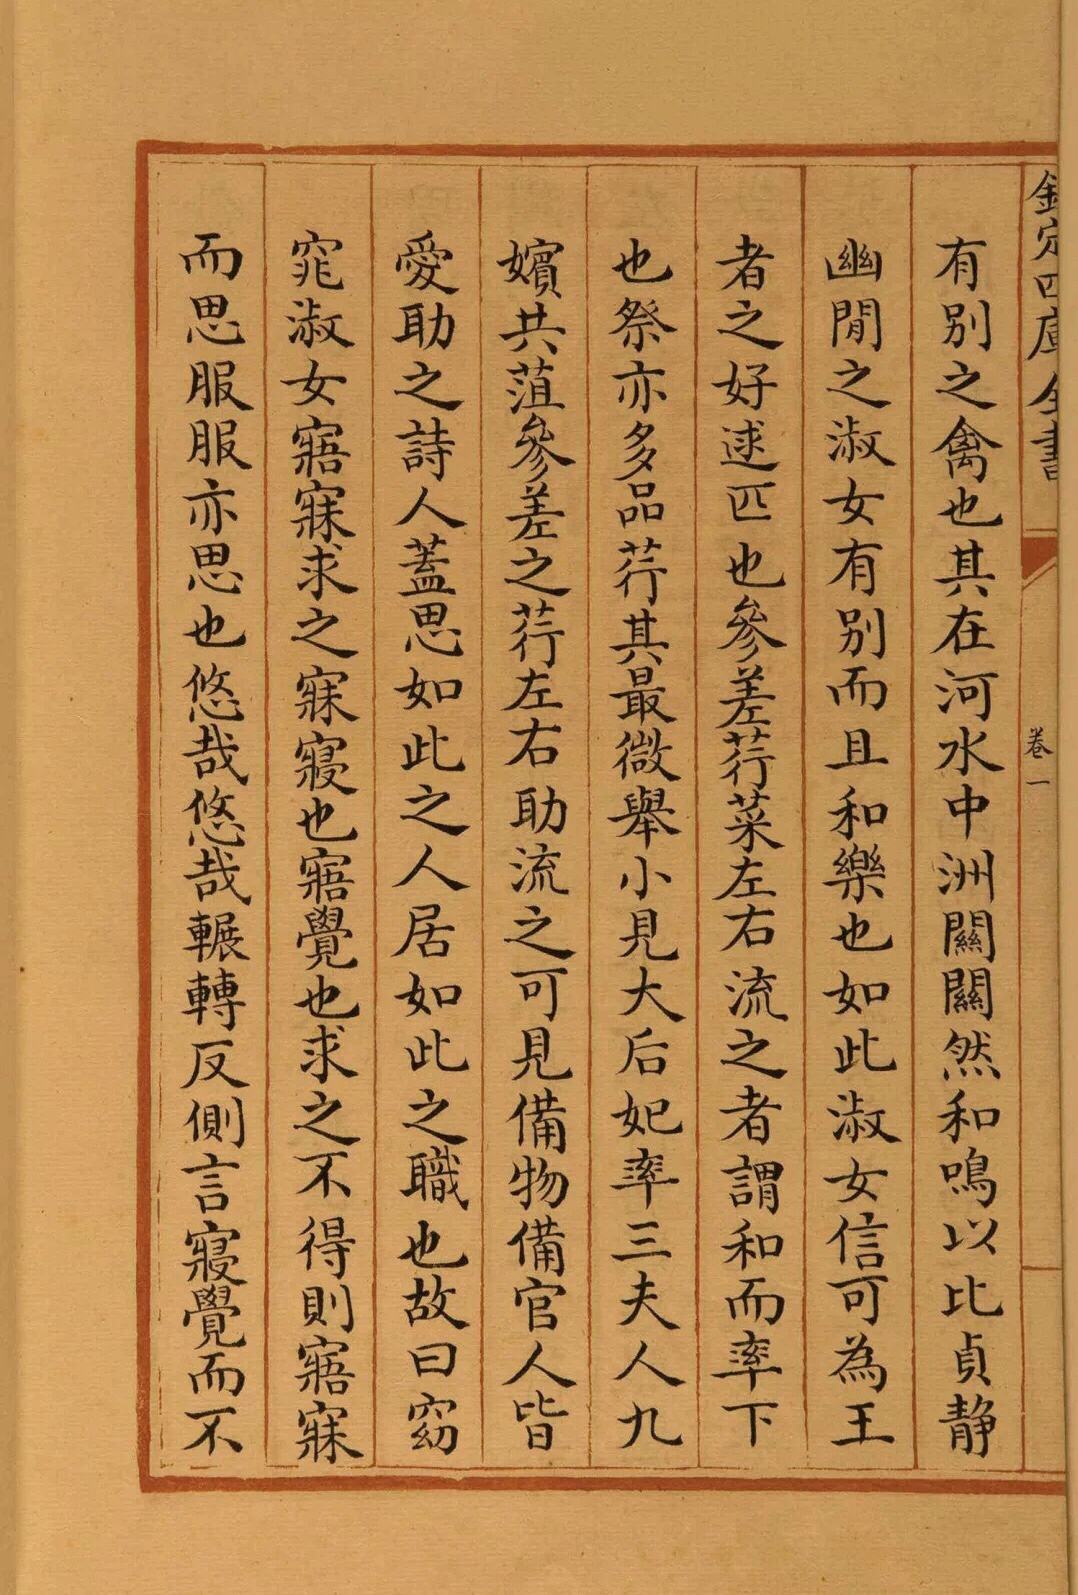 欽定四庫全書
卷一
有别之禽也其在河水中洲關關然和鳴以比貞静
幽閒之淑女有别而且和樂也如此淑女信可為王
者之好逑匹也參差荇菜左右流之者謂和而率下
也祭亦多品荇其最微舉小見大后妃率三夫人九
嬪共菹參差之荇左右助流之可見備物備官人皆
愛助之詩人蓋思如此之人居如此之職也故曰窈
窕淑女寤寐求之寐寢也寤覺也求之不得則寤寐
而思服服亦思也悠哉悠哉輾轉反側言寢覺而不